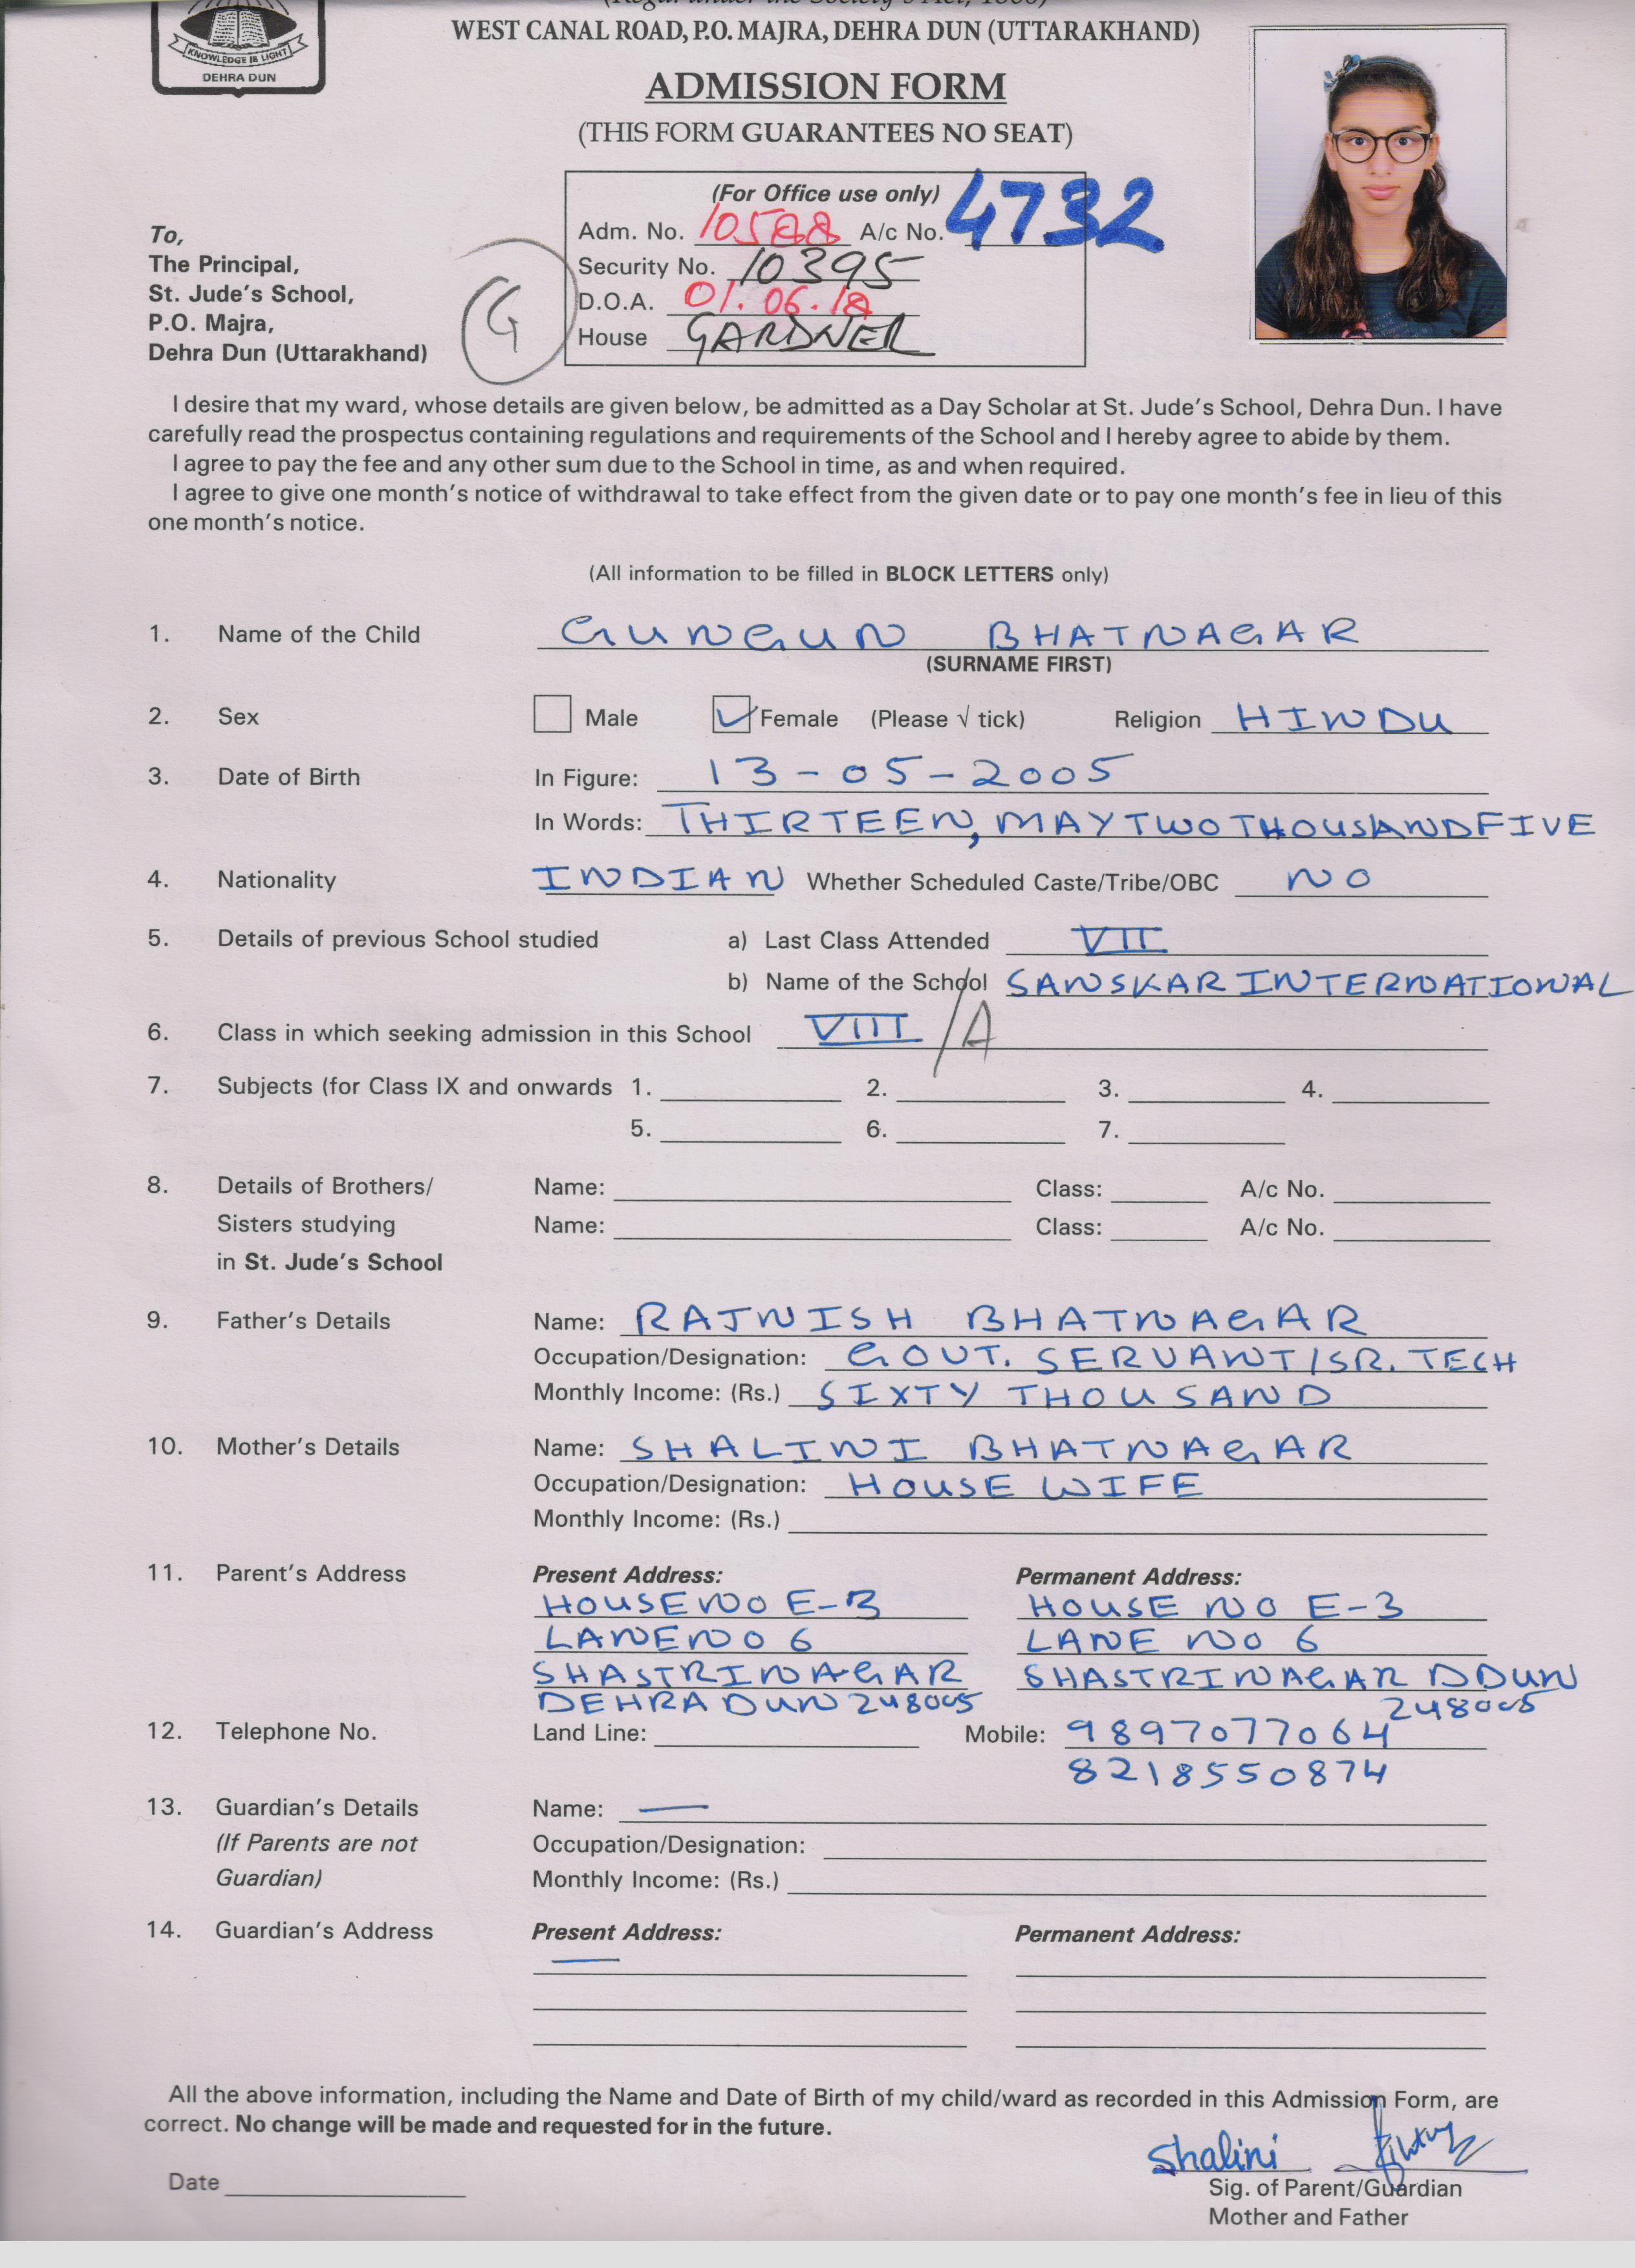 KNOWLEDGE IS LIGHT
DEHRA DUN
WEST CANAL ROAD, P.O. MAJRA, DEHRA DUN (UTTARAKHAND)
ADMISSION FORM
(THIS FORM GUARANTEES NO SEAT)
(For Office use only)
Adm. No. 10588 A/c No. 4732
Security No. 10395
D.O.A. 01.06.18
House GARDNER
G
To,
The Principal,
St. Jude's School,
P.O. Majra,
Dehra Dun (Uttarakhand)
I desire that my ward, whose details are given below, be admitted as a Day Scholar at St. Jude's School, Dehra Dun. I have
carefully read the prospectus containing regulations and requirements of the School and I hereby agree to abide by them.
I agree to pay the fee and any other sum due to the School in time, as and when required.
I agree to give one month's notice of withdrawal to take effect from the given date or to pay one month's fee in lieu of this
one month's notice.
(All information to be filled in BLOCK LETTERS only)
1. Name of the Child GUNGUN BHATNAGAR
(SURNAME FIRST)
2. Sex Male Female (Please √ tick) Religion HINDU
3. Date of Birth In Figure: 13-05-2005
In Words: THIRTEEN, MAY TWO THOUSAND FIVE
4. Nationality INDIAN Whether Scheduled Caste/Tribe/OBC NO
5. Details of previous School studied a) Last Class Attended VII
b) Name of the School SANSKAR INTERNATIONAL
6. Class in which seeking admission in this School VIII /A
7. Subjects (for Class IX and onwards 1. 2. 3. 4.
5. 6. 7.
8. Details of Brothers/ Name: Class: A/c No.
Sisters studying Name: Class: A/c No.
in St. Jude's School
9. Father's Details Name: RAJNISH BHATNAGAR
Occupation/Designation: GOVT. SERVANT/SR. TECH
Monthly Income: (Rs.) SIXTY THOUSAND
10. Mother's Details Name: SHALINI BHATNAGAR
Occupation/Designation: HOUSE WIFE
Monthly Income: (Rs.)
11. Parent's Address Present Address: Permanent Address:
HOUSE NO E-3 HOUSE NO E-3
LANE NO 6 LANE NO 6
SHASTRINAGAR SHASTRINAGAR DDUN
DEHRA DUN 248005 248005
12. Telephone No. Land Line: Mobile: 9897077064
8218550874
13. Guardian's Details Name: —
(If Parents are not Occupation/Designation:
Guardian) Monthly Income: (Rs.)
14. Guardian's Address Present Address: Permanent Address:
—
All the above information, including the Name and Date of Birth of my child/ward as recorded in this Admission Form, are
correct. No change will be made and requested for in the future.
Shalini
Date Sig. of Parent/Guardian
Mother and Father